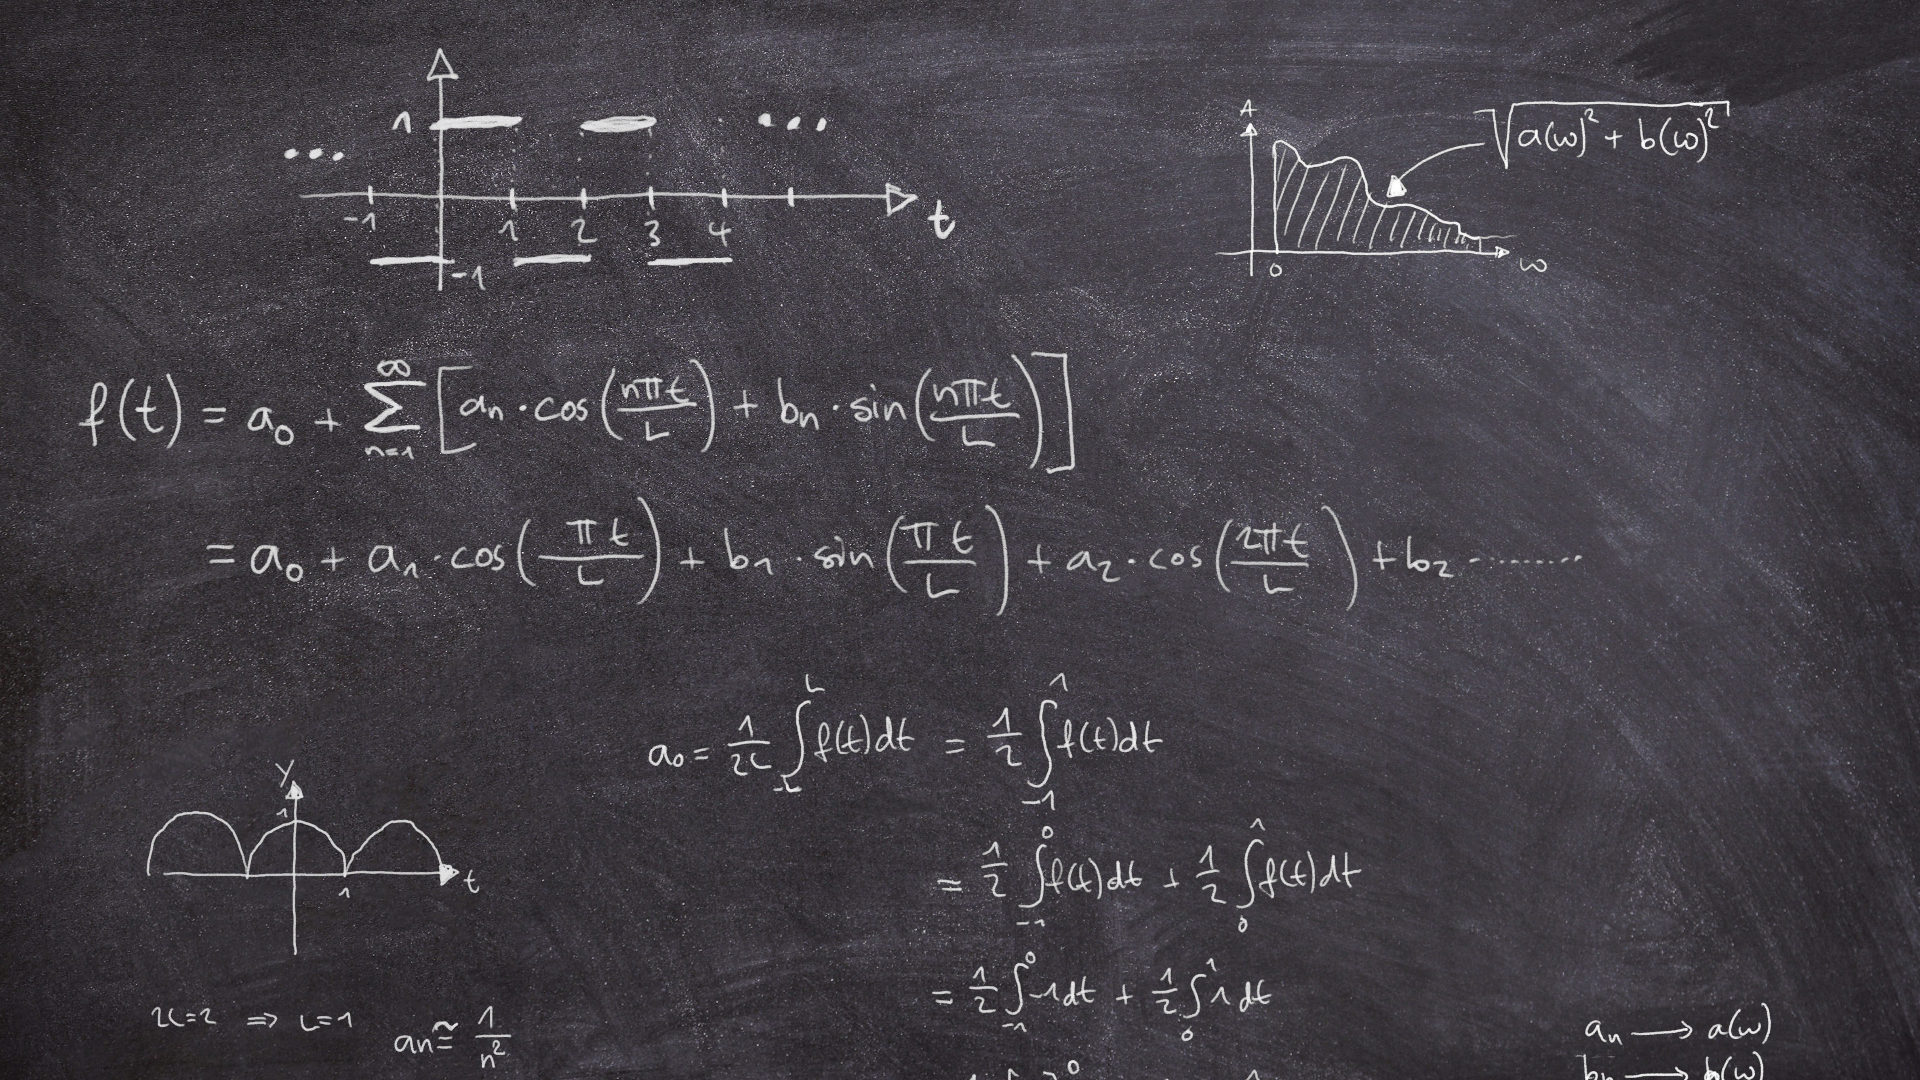 1
...
...
-1 1 2 3 4 t
-1
A
√(a(ω)² + b(ω)²)
0 ω
f(t) = a₀ + ∑ₙ₌₁^∞ [aₙ · cos(nπt/L) + bₙ · sin(nπt/L)]
= a₀ + a₁ · cos(πt/L) + b₁ · sin(πt/L) + a₂ · cos(2πt/L) + b₂ ........
a₀ = 1/2L ∫_-L^L f(t)dt = 1/2 ∫_-1^1 f(t)dt
= 1/2 ∫_-1^0 f(t)dt + 1/2 ∫_0^1 f(t)dt
= 1/2 ∫_-1^0 -1dt + 1/2 ∫_0^1 1dt
y
1
1 t
2L=2 ⇒ L=1
aₙ ≅ 1/n²
aₙ → a(ω)
bₙ → b(ω)